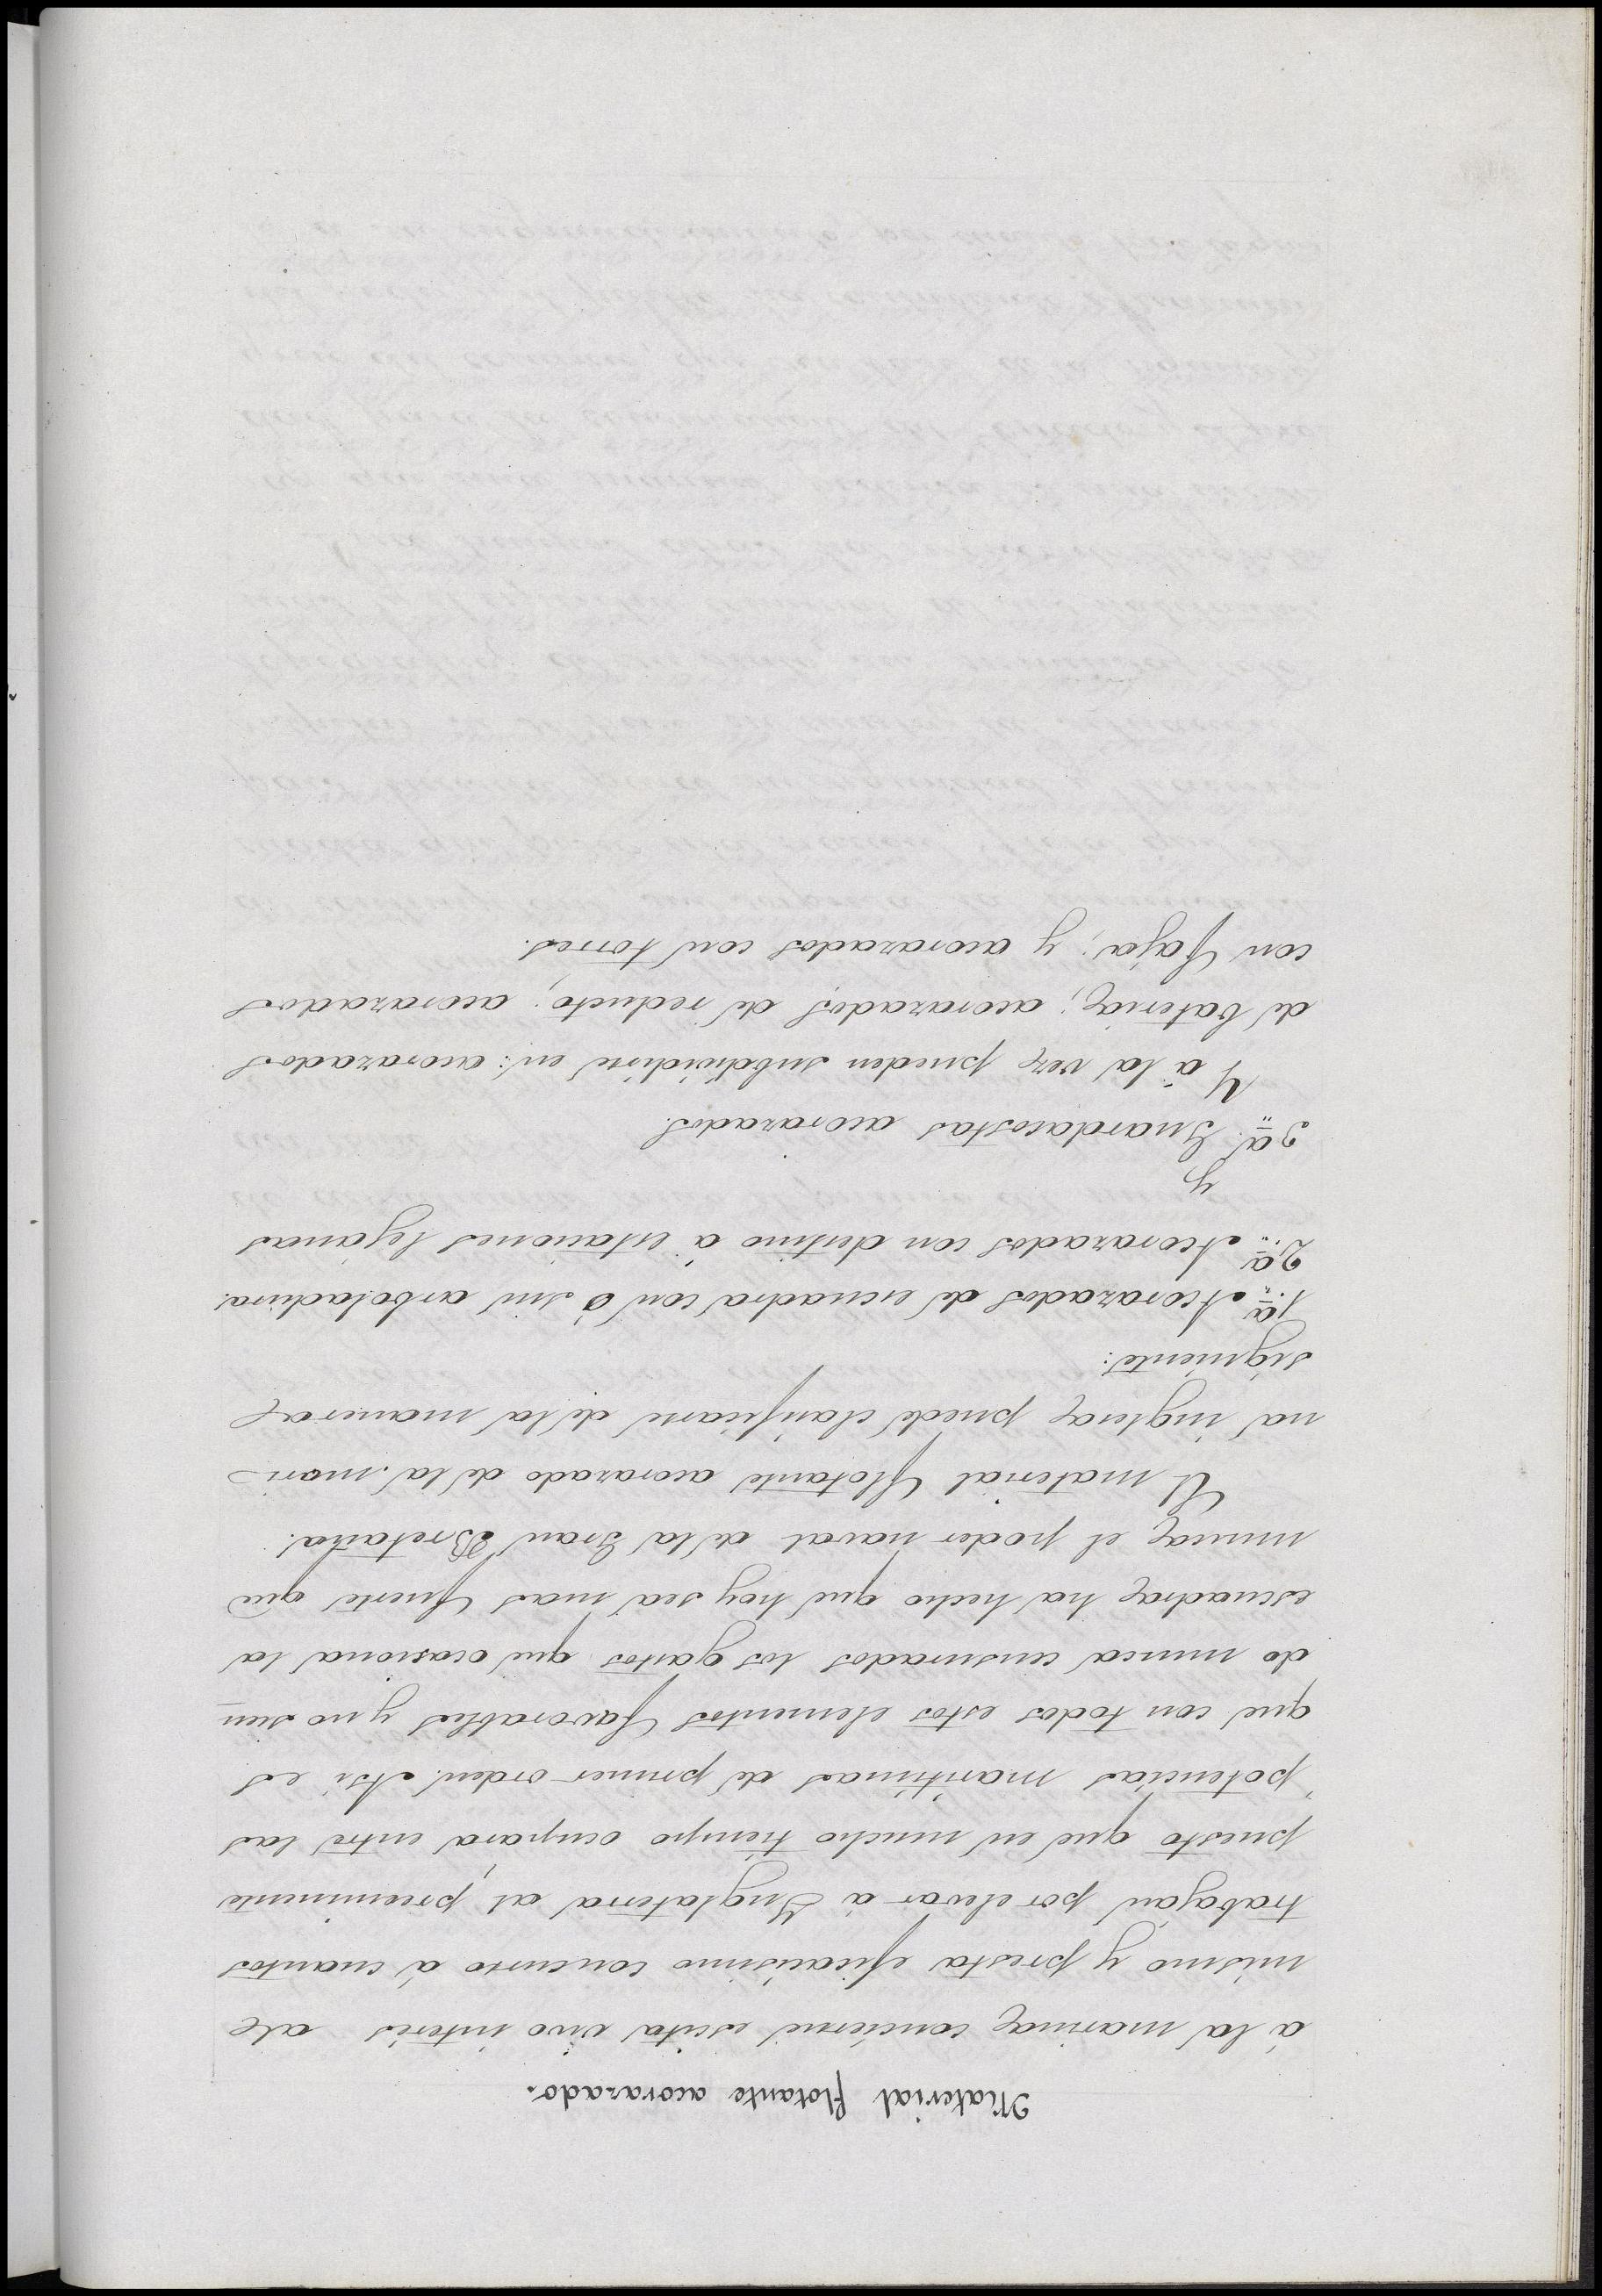 Material flotante acorazado.
á la marina concierne escita vivo interés al
mismo y presta eficacisimo concurso á cuantos
trabajan por elevar á Inglaterra al preeminente
puesto que en mucho tiempo ocupara entre las
potencias maritimas de primer orden. Asi es
que con todos estos elementos favorables y no sien
do nunca censurados los gastos que ocasiona la
escuadra ha hecho que hoy sea mas fuerte que
nunca el poder naval de la Gran Bretaña.
El material flotante acorazado de la mari-
na inglesa puede clasificarse de la manera
siguiente:
1.ª Acorazados de escuadra con ó sin arboladura.
2.ª Acorazados con destino á estaciones lejanas
y
3.ª Guardacostas acorazados.
Y á la vez pueden subdividirse en: acorazados
de bateria; acorazados de reducto; acorazados
con faja; y acorazados con torres.